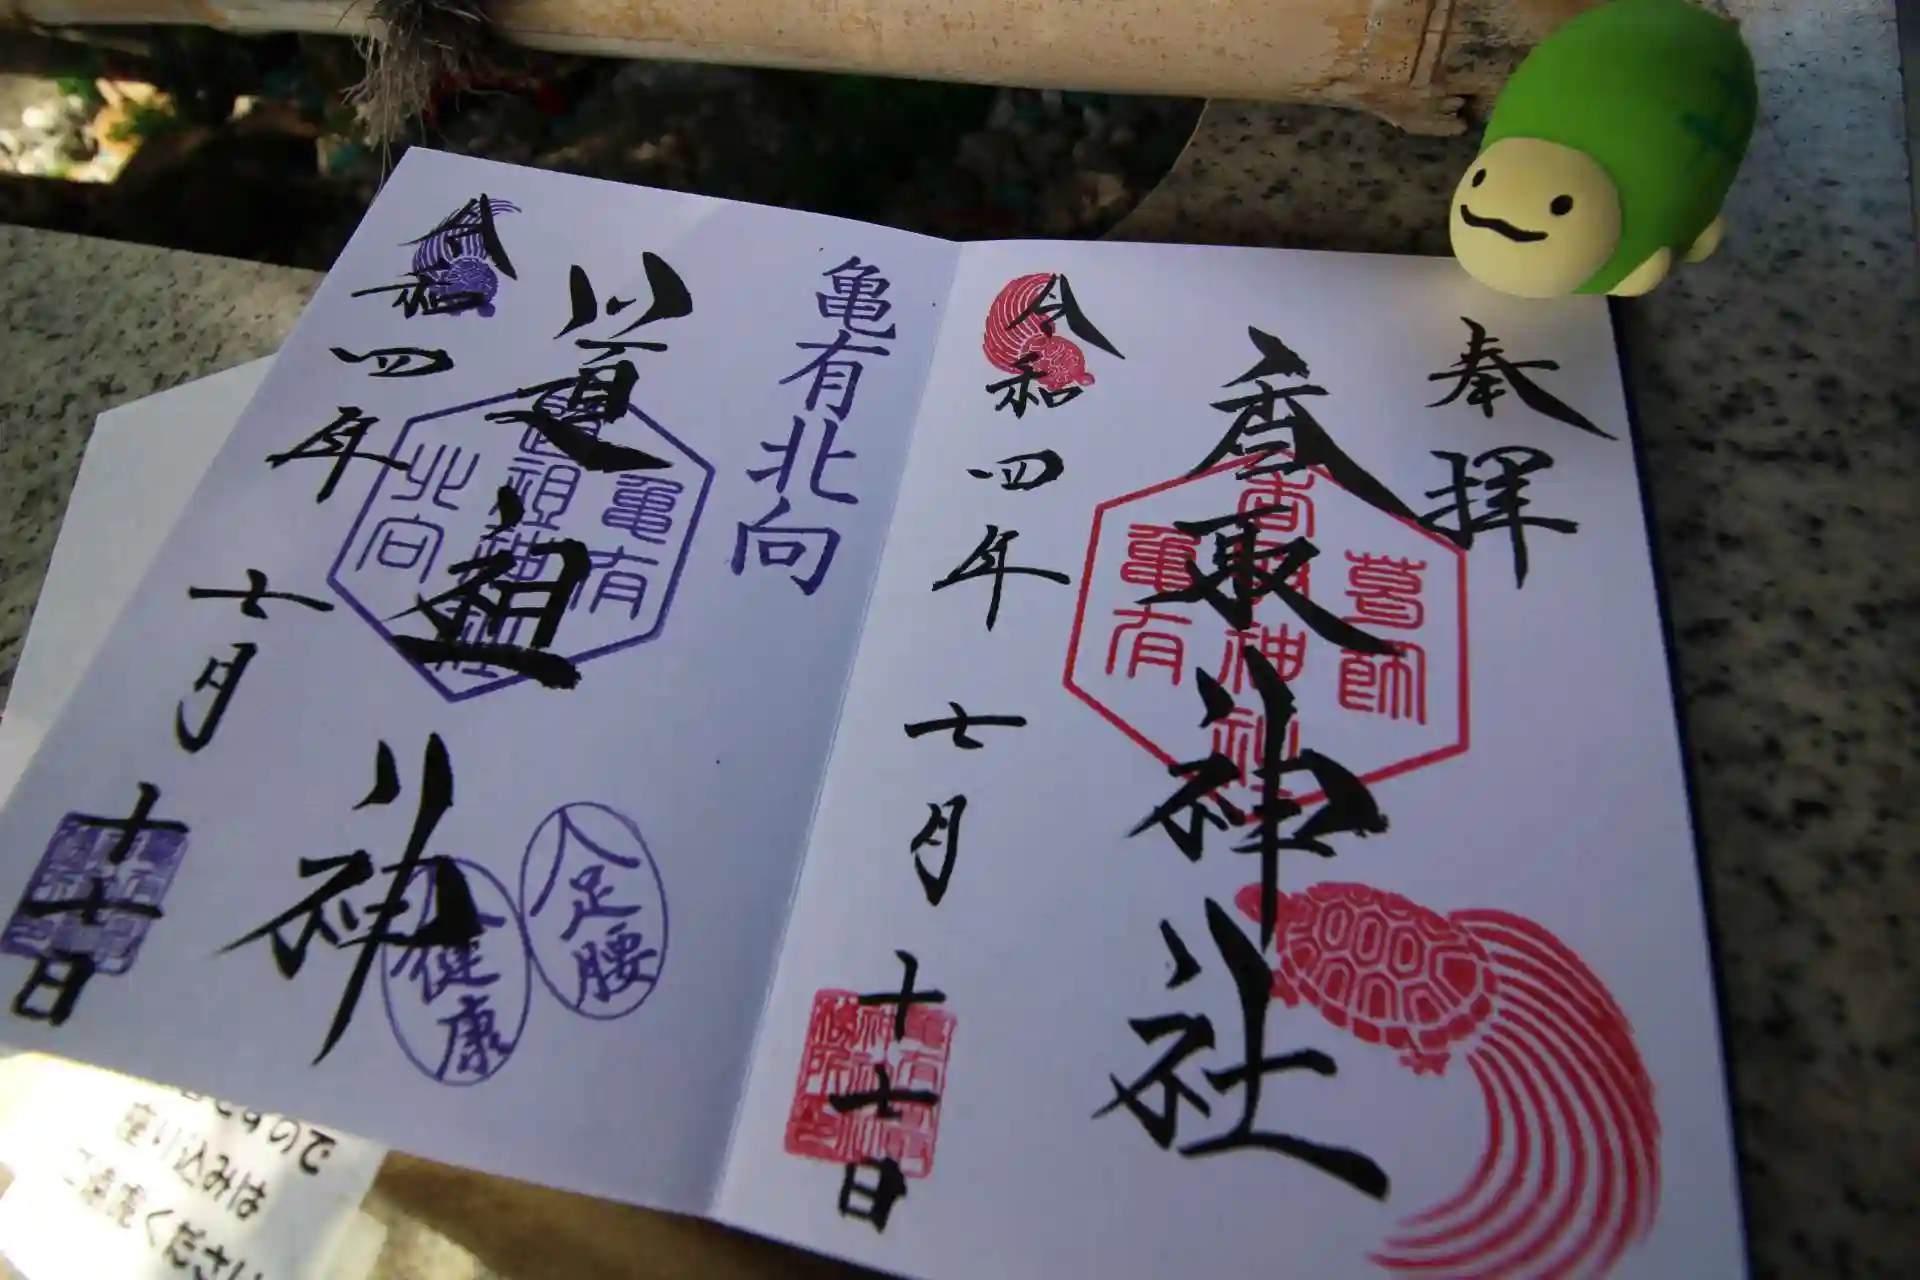 奉拝
香取神社
葛飾
香取神社
亀有
令和四年七月十七日
亀有北向
道祖神
亀有
道祖神神社
北向
足腰
健康
令和四年七月十七日
ですので
座り込みは
ご遠慮ください